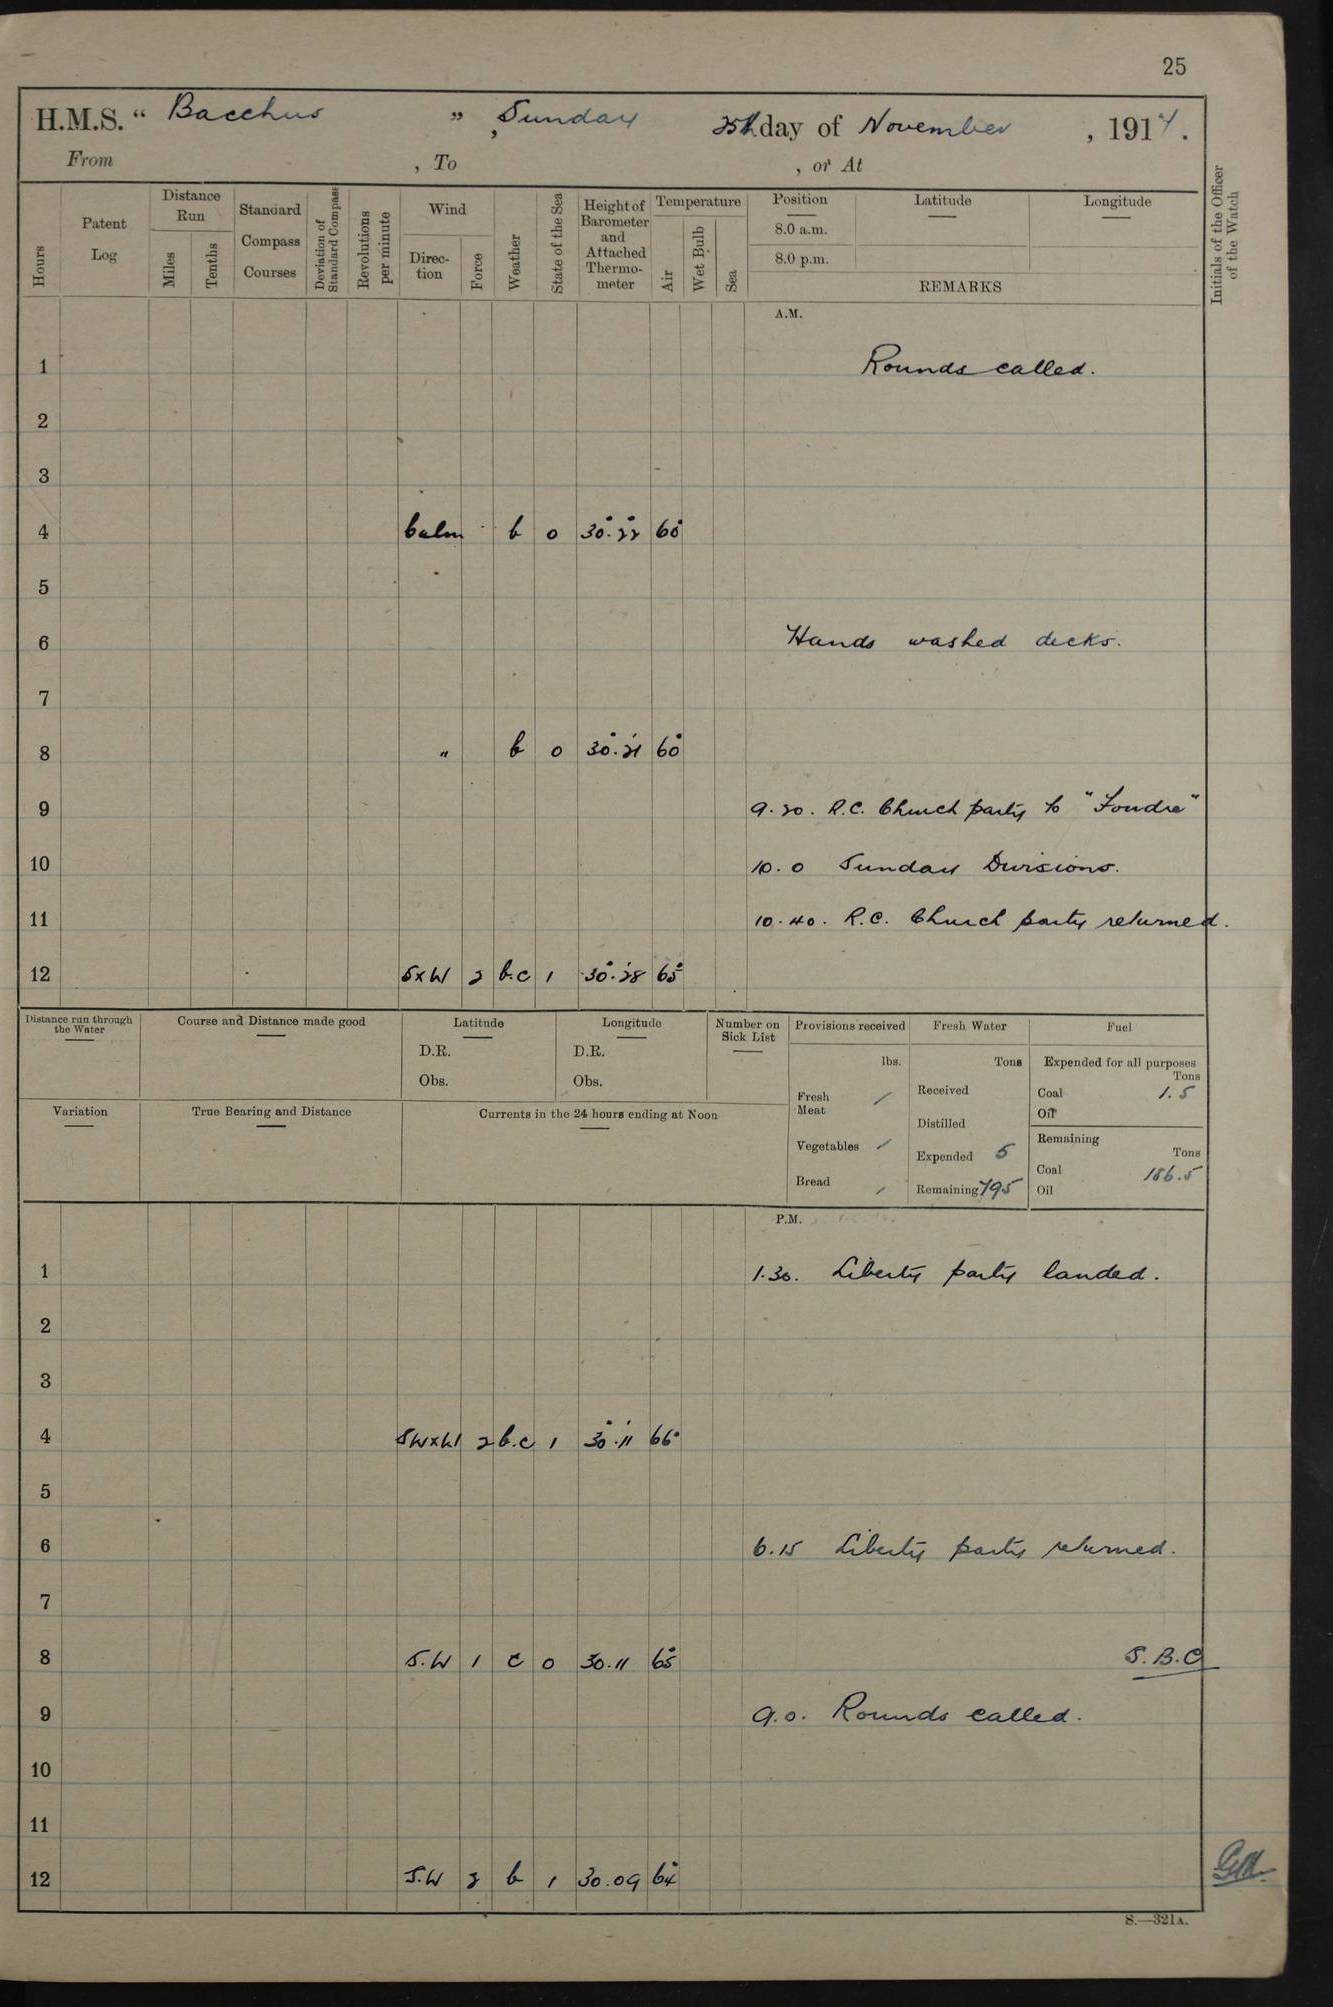 25
H.M.S. “ Bacchus ” , Sunday 25th day of November , 1914.
From , To , or At
Hours
Patent Log
Distance Run
Miles
Tenths
Standard Compass Courses
Deviation of Standard Compass
Revolutions per minute
Wind
Direction
Force
Weather
State of the Sea
Height of Barometer and Attached Thermometer
Temperature
Air
Wet Bulb
Sea
Position Latitude Longitude
8.0 a.m.
8.0 p.m.
REMARKS
Initials of the Officer of the Watch
A.M.
1 Rounds called.
2
3
4 Calm b 0 30.22 60
5
6 Hands washed decks.
7
8 " b 0 30.21 60
9 9.20. R.C. Church party to "Foudre"
10 10.0 Sunday Divisions.
11 10.40. R.C. Church party returned.
12 SxW 2 b.c 1 30.28 65
Distance run through the Water
Course and Distance made good
Latitude
D.R.
Obs.
Longitude
D.R.
Obs.
Number on Sick List
Provisions received
lbs.
Fresh Meat /
Vegetables /
Bread /
Fresh Water
Tons
Received
Distilled
Expended 5
Remaining 795
Fuel
Expended for all purposes
Tons
Coal 1.5
Oil
Remaining
Tons
Coal 186.5
Oil
Variation
True Bearing and Distance
Currents in the 24 hours ending at Noon
P.M.
1 1.30. Liberty party landed.
2
3
4 SWxW 2 b.c 1 30.11 66°
5
6 6.15 Liberty party returned.
7
8 S.W 1 c 0 30.11 65 S.B.C
9 9.0. Rounds called.
10
11
12 S.W 2 b 1 30.09 64
S.—321A.